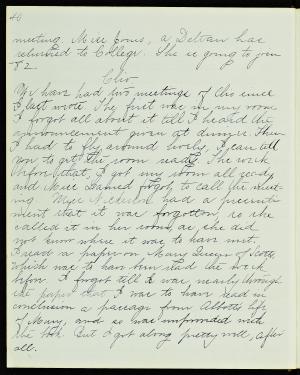 40
meeting. Miss Jones, a Deltan has
returned to College. She is going to join
82.
Clio
We have had two meetings of Clio since
I last wrote. The first was in my room
I forgot all about it till I heard the
announcement given at dinner. Then
I had to fly around lively, I can tell
you to get the room ready. The week
before that, I got my room all ready
and Miss forgot to call the meet-
ing. Miss Nickerson had a presenti-
ment that it was forgotten, so she
called it in her room as she did
not know where it was to have met.
I read a paper on Mary Queen of Scots
which was to have been read the week
before. I forgot till I was nearly through
the paper that I was to have read in
conclusion a passage from Abbott's life
of Mary, and so was unprovided with
the book. But I got along pretty well, after
all.